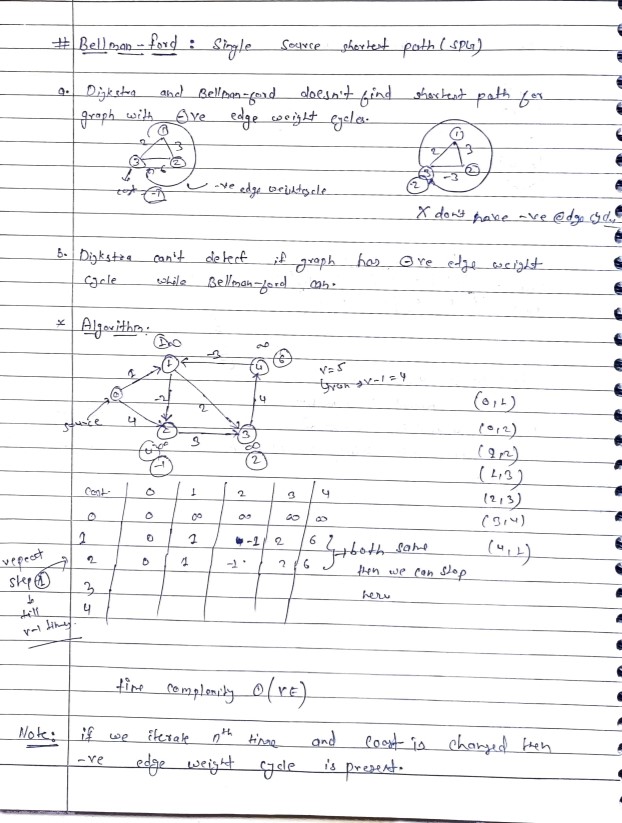 # Bellman-ford : Single Source shortest path (SPG)
a. Dijkstra and Bellman-ford doesn't find shortest path for
graph with ⊖ve edge weight cycles.
1
2 3
3 2
-6
cost -1
-ve edge weight cycle
1
2 3
3 2
-3
2
X don't have -ve edge cycle
b. Dijkstra can't detect if graph has ⊖ve edge weight
cycle while Bellman-ford can.
x Algorithm.
∞ ∞
1 -3 4 6
1 0 -2 2 4
source 4 2 3 3
∞ ∞
-1 2
v=5
v-1=4
(0,1)
(0,2)
(1,2)
(1,3)
(2,3)
(3,4)
(4,1)
Cost 0 1 2 3 4
0 0 ∞ ∞ ∞ ∞
1 0 1 -1 2 6
2 0 1 -1 2 6
3
4
both same
then we can stop
here
repeat
step 1
till
v-1 times
time complexity O(VE)
Note: if we iterate nth time and coost is changed then
-ve edge weight cycle is present.